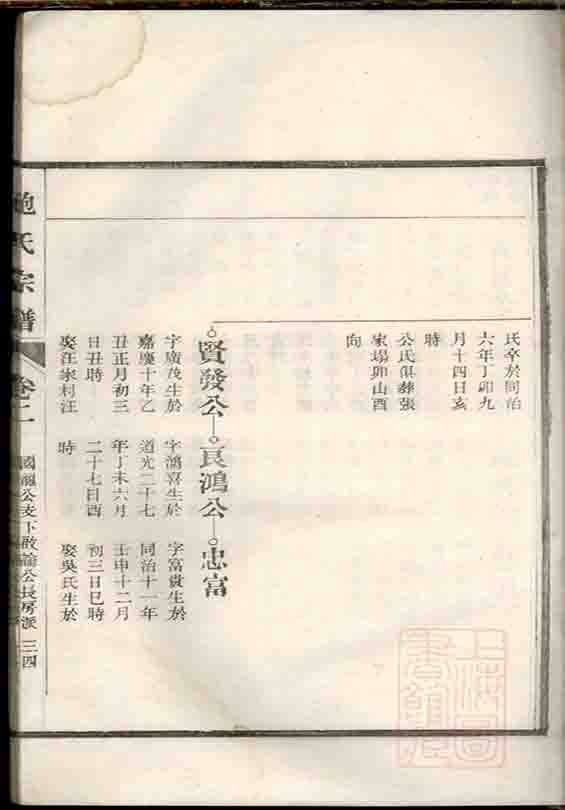 氏卒於同治
六年丁卯九
月十四日亥
時
公氏俱葬張
家塌卯山酉
向
賢發公
字廣茂生於
嘉慶十年乙
丑正月初三
日丑時
娶汪家村汪
良鴻公
字鴻喜生於
道光二十七
年丁未六月
二十七日酉
時
忠富
字富貴生於
同治十一年
壬申十二月
初三日巳時
娶吳氏生於
鮑氏宗譜
卷二
國龍公支下啟論公長房派
三四
上海圖書館藏